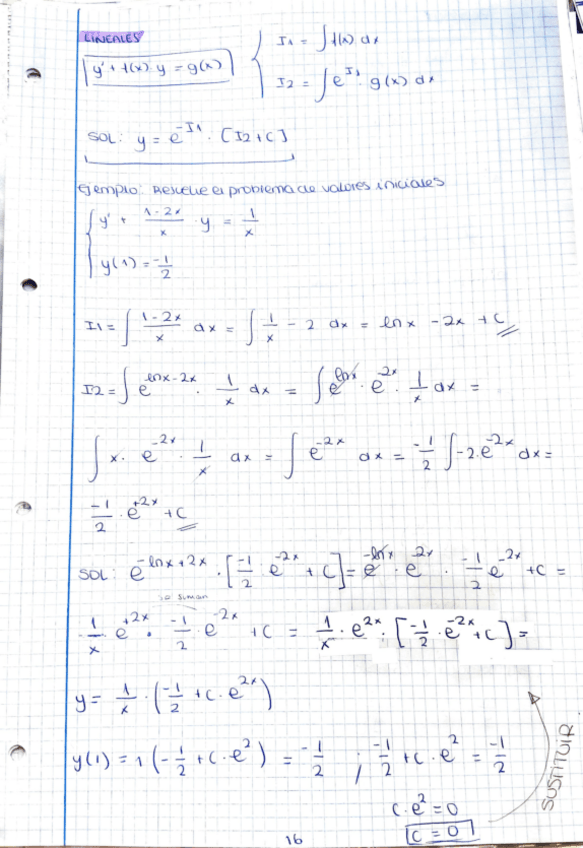 LINEALES
y' + f(x) y = g(x)
I1 = ∫ f(x) dx
I2 = ∫ e^I1 · g(x) dx
SOL: y = e^-I1 · [I2 + C]
Ejemplo: Resuelve el problema de valores iniciales
y' + (1-2x)/x · y = 1/x
y(1) = -1/2
I1 = ∫ (1-2x)/x dx = ∫ 1/x - 2 dx = lnx - 2x + C
I2 = ∫ e^(lnx-2x) · 1/x dx = ∫ e^lnx · e^-2x · 1/x dx =
∫ x · e^-2x · 1/x dx = ∫ e^-2x dx = -1/2 ∫ -2·e^-2x dx =
-1/2 · e^+2x + C
SOL: e^(-lnx+2x) · [-1/2 e^-2x + C] = e^-lnx · e^2x · -1/2 e^-2x + C =
se suman
1/x e^+2x · -1/2 · e^-2x + C = 1/x · e^2x · [-1/2 · e^-2x + C] =
y = 1/x · (-1/2 + C · e^2x)
y(1) = 1 (-1/2 + C · e^2) = -1/2 ; -1/2 + C · e^2 = -1/2
C · e^2 = 0
C = 0
SUSTITUIR
16